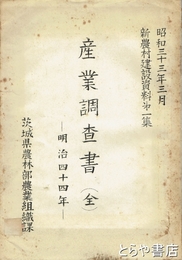 昭和三十三年三月
新農村建設資料第一集
産業調査書(全)
―明治四十四年―
茨城県農林部農業組織課
とらや書店